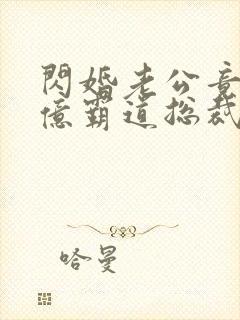 閃婚老公竟
億霸道總裁
哈曼